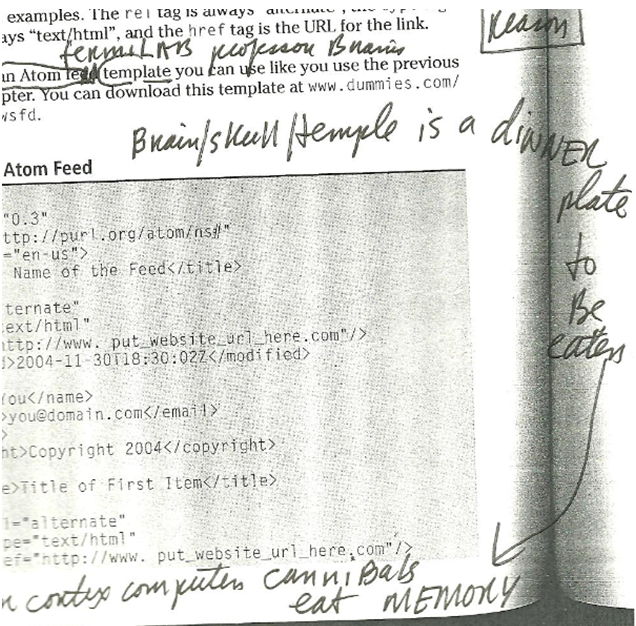 examples. The rel tag is always "alternate", the
Reason
ays "text/html", and the href tag is the URL for the link.
fermiLAB professor Brains
an Atom feed template you can use like you use the previous
pter. You can download this template at www.dummies.com/
wsfd.
Brain/skull/temple is a dinner
plate
to
Be
eaten
Atom Feed
"0.3"
ttp://purl.org/atom/ns#"
="en-us">
Name of the Feed</title>
ternate"
ext/html"
http://www. put_website_url_here.com"/>
d>2004-11-30T18:30:02Z</modified>
You</name>
>you@domain.com</email>
>
ht>Copyright 2004</copyright>
e>Title of First Item</title>
l="alternate"
pe="text/html"
ef="http://www. put_website_url_here.com"/>
contex computers canniBals
eat MEMORY